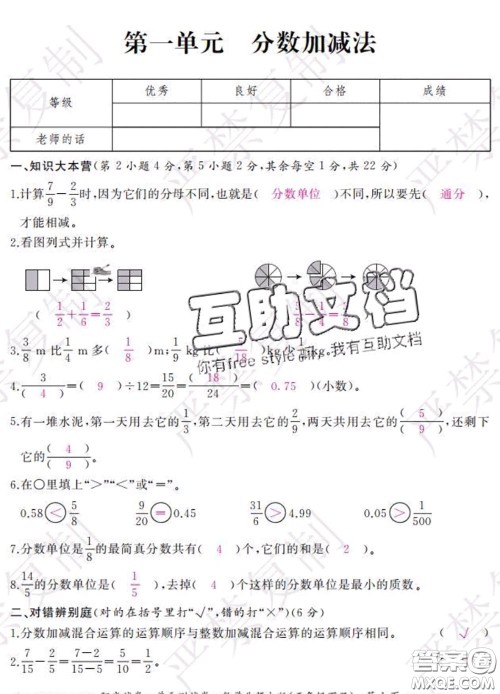 第一单元 分数加减法
等级 优秀 良好 合格 成绩
老师的话
一、知识大本营(第2小题4分,第5小题2分,其余每空1分,共22分)
1.计算7/9-2/3时,因为它们的分母不同,也就是( 分数单位 )不同,所以要先( 通分 ),
才能相减。
2.看图列式并计算。
( 1/2+1/6=2/3 )
3.3/8 m比1/4 m多( 1/8 )m;1/9 kg比( 5/18 )kg
4.3/( 4 )=( 9 )÷12=15/20=( 18 )/24=( 0.75 )(小数)。
5.有一堆水泥,第一天用去它的1/3,第二天用去它的2/9,两天共用去它的( 5 )/( 9 ),还剩下
它的( 4 )/( 9 )。
6.在○里填上“>”“<”或“=”。
0.58 < 5/8 9/20 = 0.45 31/6 > 4.99 0.05 > 1/500
7.分数单位是1/8的最简真分数共有( 4 )个,它们的和是( 2 )。
8.14/5的分数单位是( 1/5 ),去掉( 4 )个这样的分数单位是最小的质数。
二、对错辨别庭(对的在括号里打“√”,错的打“×”)(6分)
1.分数加减混合运算的运算顺序与整数加减混合运算的运算顺序相同。 ( √ )
2.7/15-2/5=(7-2)/(15-5)=5/10=1/2
互助文档
你有free style吗?我有互助文档
严禁复制
答案圈
MXQE.COM